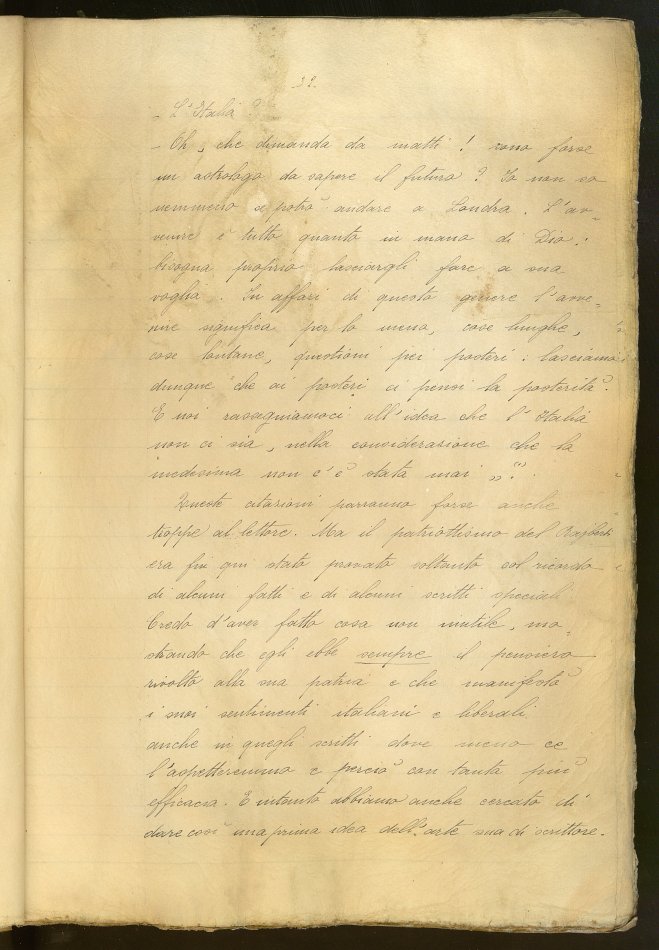 32
- L'Italia?
- Oh, che dimanda da matti! sono forse
un astrologo da sapere il futuro? Io non so
nemmeno se potrò andare a Londra. L'av-
venire è tutto quanto in mano di Dio:
bisogna proprio lasciargli fare a sua
voglia. In affari di questo genere l'avve-
nire significa per lo meno, cose lunghe,
cose lontane, questioni pei posteri: lasciamo
dunque che ai posteri ci pensi la posterità.
E noi rassegniamoci all'idea che l'Italia
non ci sia, nella considerazione che la
medesima non c'è stata mai „
Queste citazioni parranno forse anche
troppe al lettore. Ma il patriottismo del Rajberti
era fin qui stato provato soltanto col ricordo
di alcuni fatti e di alcuni scritti speciali
Credo d'aver fatto cosa non inutile, mo-
strando che egli ebbe sempre il pensiero
rivolto alla sua patria e che manifestò
i suoi sentimenti italiani e liberali
anche in quegli scritti dove meno ce
l'aspetteremmo e perciò con tanta più
efficacia. E intanto abbiamo anche cercato di
dare così una prima idea dell'arte sua di scrittore.